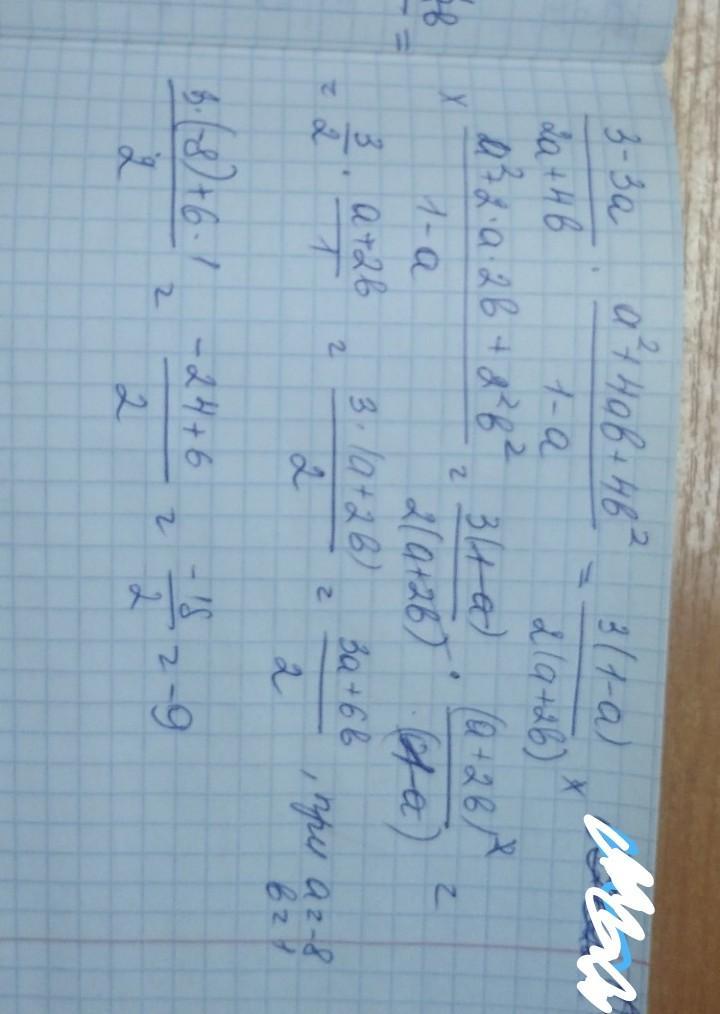 2b
=
(3-3a)/(2a+4b) · (a²+4ab+4b²)/(1-a) = 3(1-a)/(2(a+2b)) ×
× (a²+2·a·2b+2²b²)/(1-a) = 3(1-a)/(2(a+2b)) · (a+2b)²/(1-a) =
= 3/2 · (a+2b)/1 = 3·(a+2b)/2 = (3a+6b)/2 , при a=-8
b=1
(3·(-8)+6·1)/2 = (-24+6)/2 = -18/2 = -9